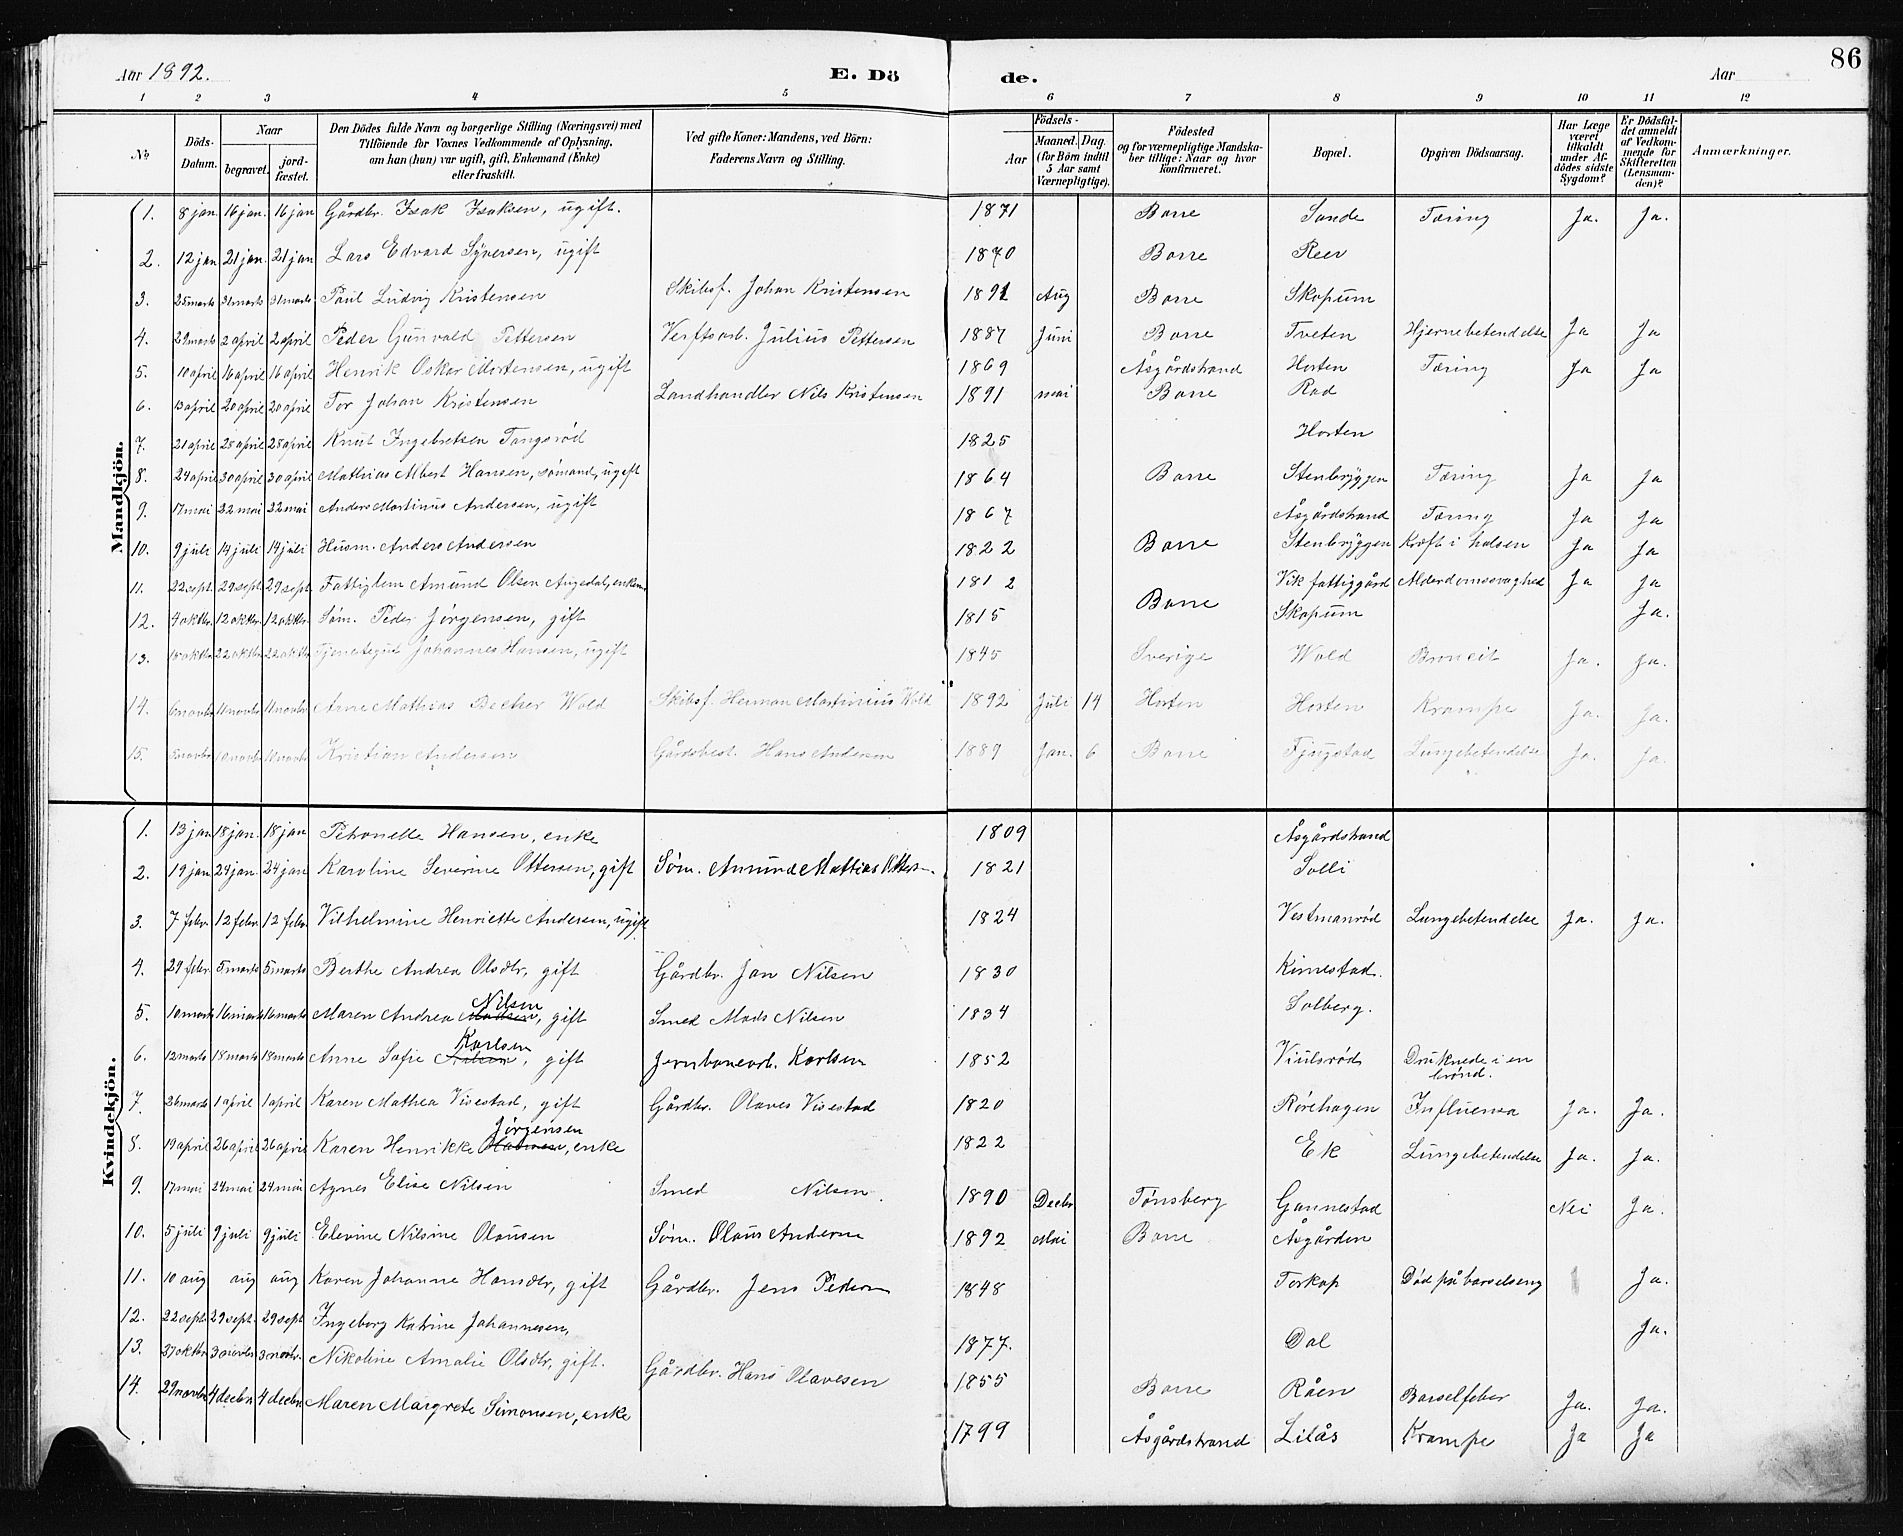 Aar 1892. E. Dö de. Aar 86
1 2 3 4 5 6 7 8 9 10 11 12
No Döds-Datum. Naar begravet. jord-fæstet. Den Dödes fulde Navn og borgerlige Stilling (Næringsvei) med Tilföiende for Voxnes Vedkommende af Oplysning, om han (hun) var ugift, gift, Enkemand (Enke) eller fraskilt. Ved gifte Koner: Mandens, ved Börn: Faderens Navn og Stilling. Födsels- Aar Maaned. Dag. (for Börn indtil 5 Aar samt Værnepligtige). Födested og for værnepligtige Mandskaber tillige: Naar og hvor konfirmeret. Bopæl. Opgiven Dödsaarsag. Har Læge været tilkaldt under Afdödes sidste Sygdom? Er Dödsfaldet anmeldt af Vedkommende for Skifteretten (Lensmanden)? Anmærkninger.
Mandkjön.
1. 8 jan 16 jan. 16 jan Gårdbr. Isak Isaksen, ugift. 1871 Borre Sande Tæring Ja. Ja.
2. 12 jan 21 jan. 21 jan Lars Edvard Syversen, ugift 1870 Borre Reer
3. 25 marts 31 marts 31 marts Paul Ludvig Kristensen Skibsf. Johan Kristensen 1891 Aug Borre Skopum
4. 29 marts 2 april 2 april Peder Gunvald Pettersen Verftsarb. Julius Pettersen 1887 Juni Borre Tveten Hjernebetendelse Ja Ja
5. 10 april 16 april 16 april Henrik Oskar Mortensen, ugift 1869 Åsgårdstrand Horten Tæring Ja Ja
6. 13 april 20 april 20 april Tor Johan Kristensen Landhandler Nils Kristensen 1891 mai Borre Rød
7. 21 april 28 april 28 april Knut Ingebretsen Tangsrød 1825 Horten
8. 24 april 30 april 30 april Mathias Albert Hansen, sømand, ugift 1864 Borre Stenbryggen Tæring Ja Ja
9. 17 mai 22 mai 22 mai Anders Martinus Andersen, ugift 1867 Åsgårdstrand Tæring Ja Ja
10. 9 juli 14 juli 14 juli Husm. Anders Andersen 1822 Borre Stenbryggen Kræft i halsen Ja Ja
11. 22 sept. 29 sept. 29 sept Fattiglem Amund Olsen 1812 Vik fattiggård Alderdomssvaghed Ja Ja
12. 4 oktbr. 12 oktbr. 12 oktbr Søm. Peder Jørgensen, gift 1815 Borre Skopum Ja.
13. 22 oktbr 22 oktbr Tjenestegut Johannes Hansen, ugift 1845 Sverige Wold Ja. Ja.
14. 6 novbr 11 novbr 11 novbr Arne Mathias Becher Wold Skibsf. Herman Martinius Wold 1892 Juli 14 Horten Horten Krampe Ja. Ja.
15. 5 novbr 10 novbr 11 novbr Kristian Andersen Gårdsbest. Hans Andersen 1889 Jan. 6 Borre Fjugstad Lungebetendelse Ja. Ja.
Kvindekjön.
1. 13 jan 18 jan. 18 jan Petronelle Hansen, enke 1809 Åsgårdstrand
2. 19 jan 24 jan. 24 jan Karoline Severine Ottersen, gift Søm. Amund Mathias Otters 1821 Solli
3. 7 febr. 12 febr. 12 febr. Vilhelmine Henriette Andersen, ugift 1824 Vestmanrød Lungebetendelse Ja. Ja.
4. 29 febr. 5 marts 5 marts Berthe Andrea Olsdtr, gift Gårdbr. Jan Nilsen 1830 Kinnestad.
5. 10 marts 16 marts 16 marts Maren Andrea Madsen Nilsen, gift Smed Mads Nilsen 1834 Solberg.
6. 12 marts 18 marts 18 marts Anne Sofie Karlsen, gift Jernbanearb. Karlsen 1852 Viulsrød Druknede i en brønd.
7. 26 marts 1 april 1 april Karen Mathea Visestad, gift Gårdbr. Olaves Visestad 1820 Rørehagen Influensa Ja. Ja.
8. 19 april 26 april 26 april Karen Henrikke Jørgensen, enke 1822 Ek Lungebetendelse Ja. Ja.
9. 17 mai 24 mai 24 mai Agnes Elise Nilsen Smed Nilsen 1890 Decbr Tønsberg Gannestad Nei Ja.
10. 5 juli 9 juli 9 juli Elevine Nilsine Olausen Søm. Olaus Andersen 1892 Mai Borre Åsgården
11. 10 aug aug aug Karen Johanne Hansdtr, gift Gårdbr. Jens Pedersen 1848 Torkop Død på barselseng Ja.
12. 22 sept. 29 sept. 29 sept Ingeborg Katrine Johannesen, 1877. Dal Ja.
13. 27 oktbr 3 novbr 3 novbr. Nikoline Amalie Olsdtr, gift. Gårdbr. Hans Olavesen 1855 Borre Råen Barselfeber Ja. Ja.
14. 29 novbr 4 decbr 4 decbr Maren Margrete Simonsen, enke 1799 Åsgårdstrand Lilås Krampe Ja Ja